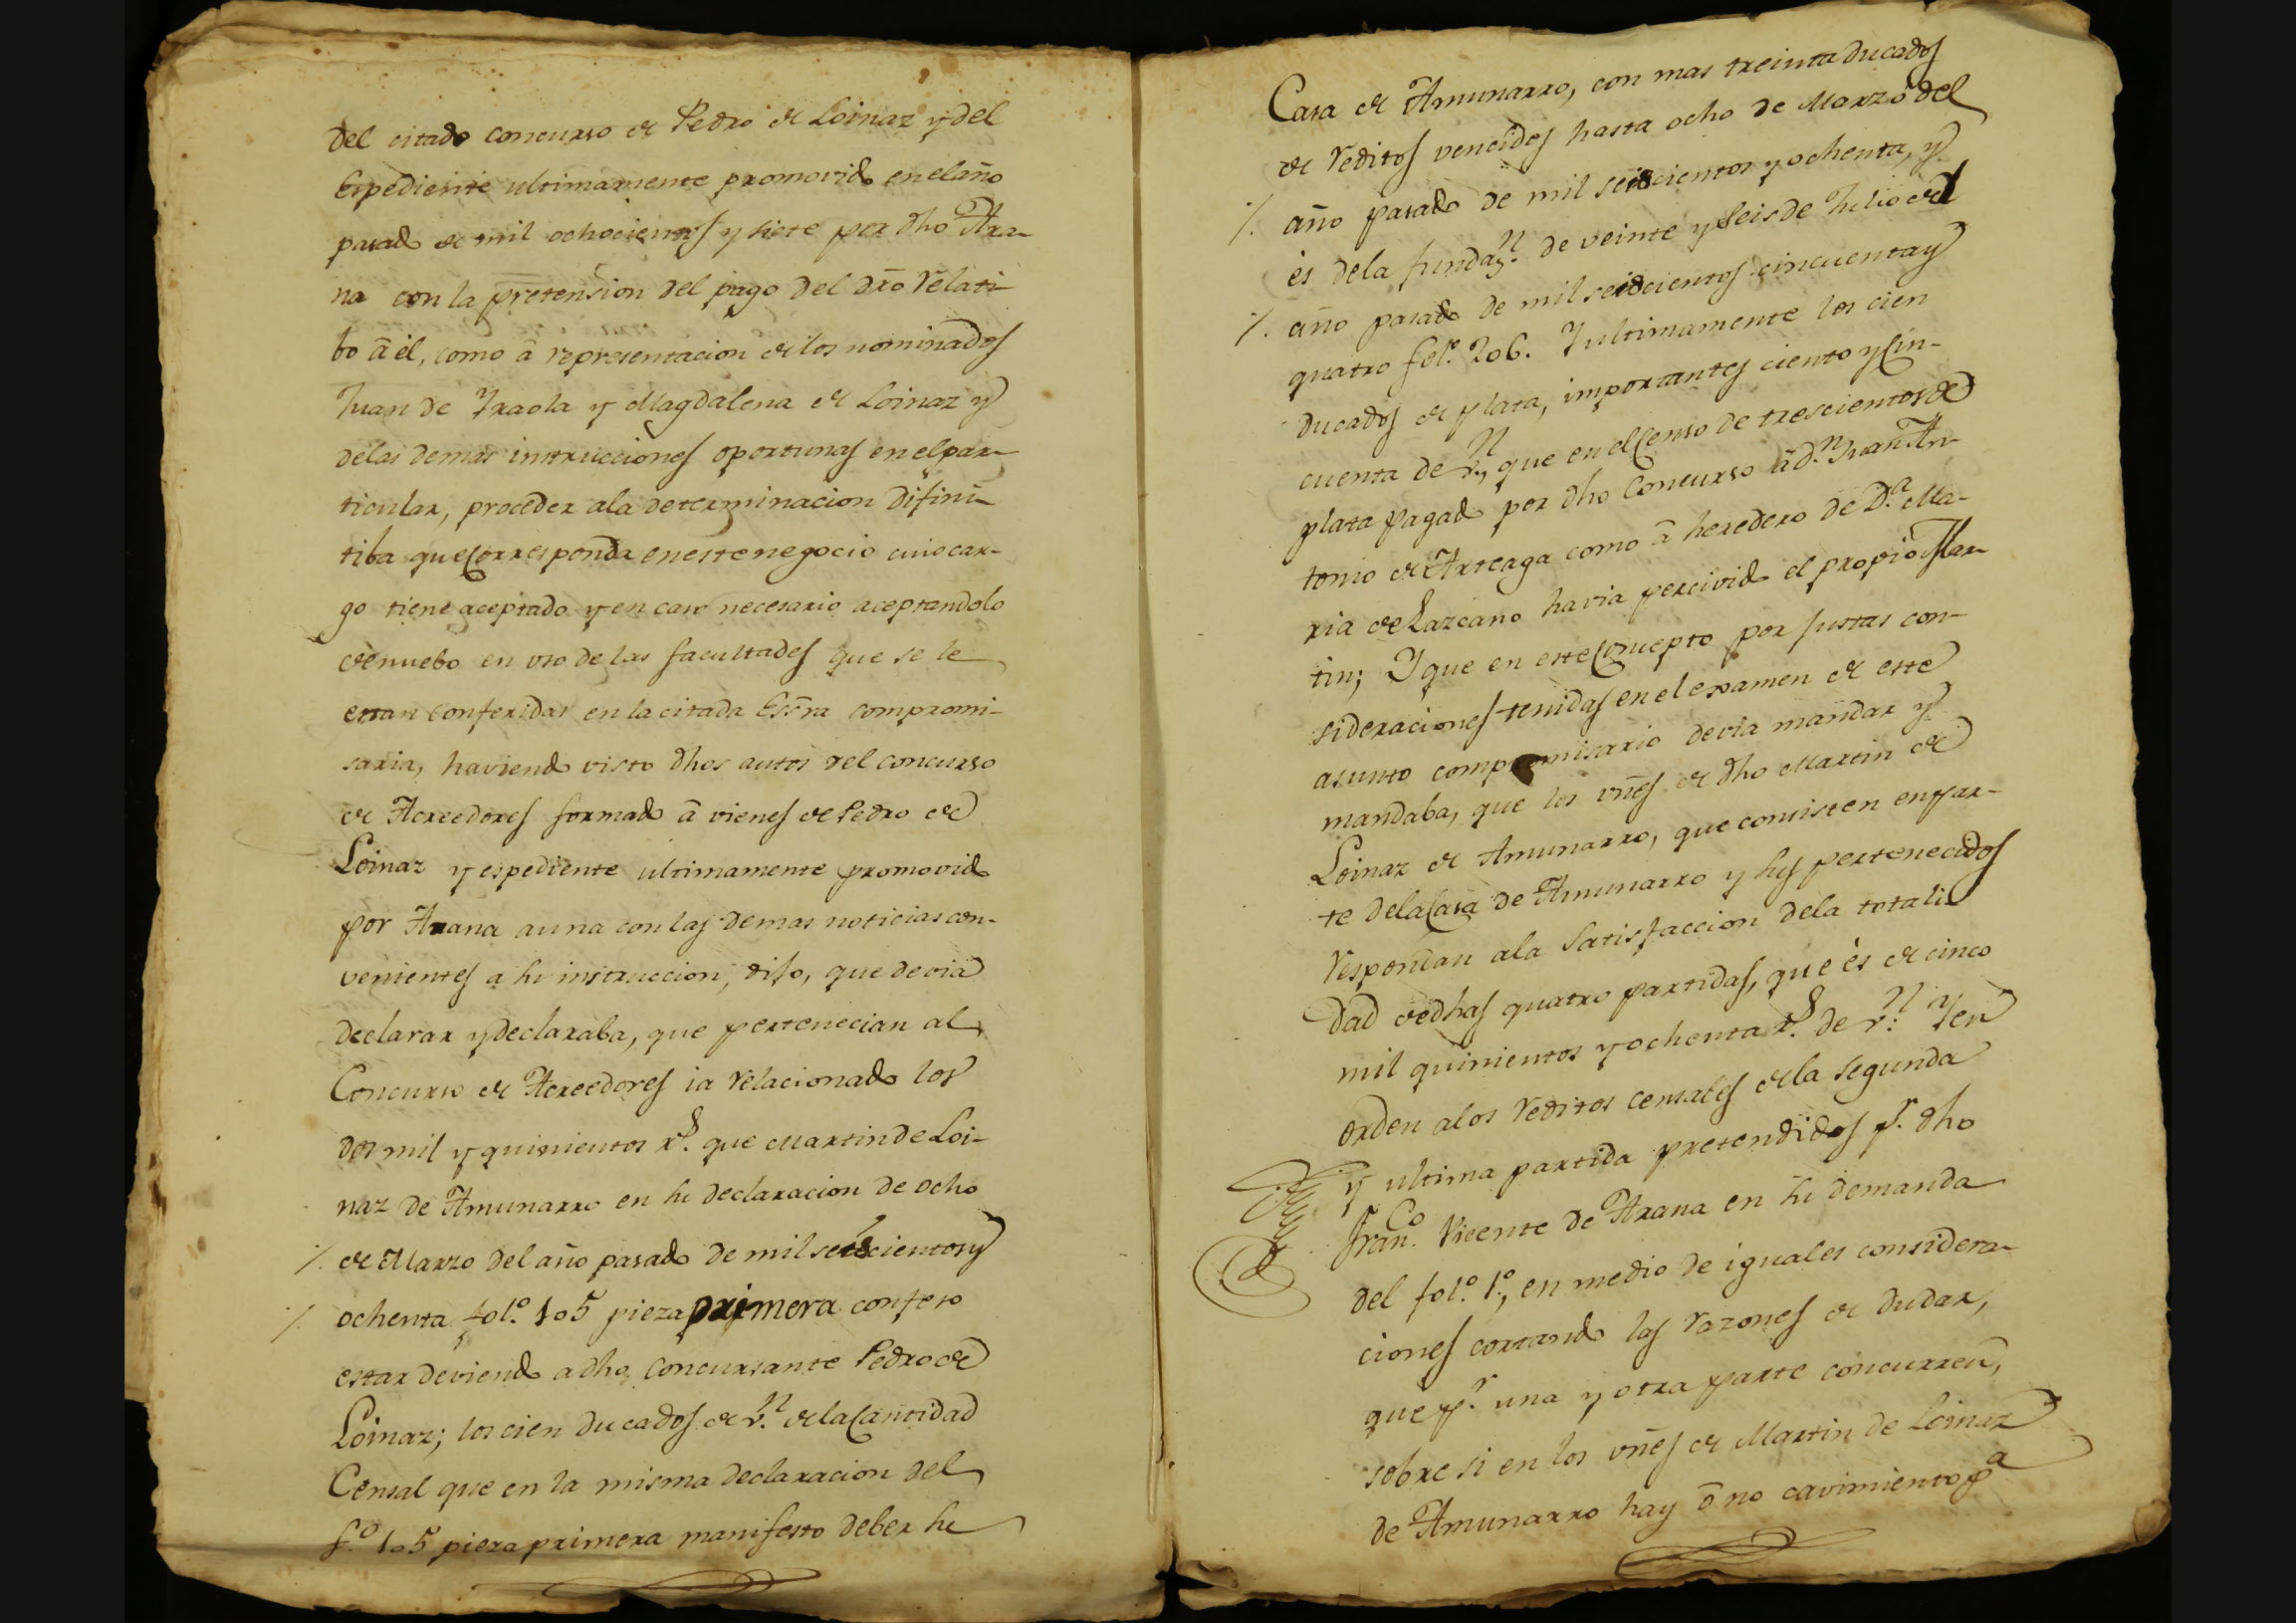 del citado concurso de Pedro de Loinaz y del
Espediente ultimamente promovido en el año
pasado de mil ochocientos y siete por dho Ara-
na con la pretension del pago del dro relati-
bo â él, como â representacion de los nominados
Juan de Yraola y Magdalena de Loinaz y
delas demas instrucciones oportunas en el par-
ticular, proceder ala determinacion difini-
tiba que Corresponda en este negocio cuio car-
go tiene aceptado y en caso necesario aceptandolo
de nuebo en uso de las facultades que se le
estan conferidas en la citada Essra compromi-
saria, haviendo visto dhos autos del concurso
de Acreedores formado â vienes de Pedro de
Loinaz y espediente ultimamente promovido
por Arana auna con las demas noticias con-
venientes a su instruccion, dijo, que devia
declarar y declaraba, que pertenecian al
Concurso de Acreedores ia relacionado los
dos mil y quinientos rs. que Martin de Loi-
naz de Amunarro en su declaracion de ocho
/. de Marzo del año pasado de mil seiscientos y
/. ochenta fol.º 105 pieza primera confeso
estar deviendo a dho concursante Pedro de
Loinaz; los cien ducados de v.n de la Cantidad
Censal que en la misma declaracion del
f.º 105 pieza primera manifesto deber su
Casa de Amunarro, con mas treinta ducados
de reditos vencidos hasta ocho de Marzo del
/. año pasado de mil seiscientos y ochenta, y
és dela fundaz.n de veinte y seis de Julio del
/. año pasado de mil seiscientos cincuenta y
quatro fol.º 206. Y ultimamente los cien
ducados de plata, importantes ciento y Cin-
cuenta de v.n, que en el Censo de trescientos de
plata pagado por dho Concurso â d.n Juan An-
tonio de Arteaga como â heredero de D.a Ma-
ria de Lazcano havia percivido el propio Mar-
tin; Y que en este Concepto por justas con-
sideraciones tenidas en el examen de este
asunto compromisario devia mandar y
mandaba, que los vñes de dho Martin de
Loinaz de Amunarro, que consisten en par-
te dela Casa de Amunarro y sus pertenecidos
respondan ala satisfaccion dela totali-
dad de dhas quatro partidas, que és de cinco
mil quinientos y ochenta rs. de v.n Y en
orden alos reditos censales de la segunda
y ultima partida pretendidos p.r dho
Fran.co Vicente de Arana en su demanda
del fol.º 1.º, en medio de iguales considera-
ciones cortando las razones de dudar,
que p.r una y otra parte concurren,
sobre si en los vñes de Martin de Loinaz
de Amunarro hay ô no cavimiento p.a